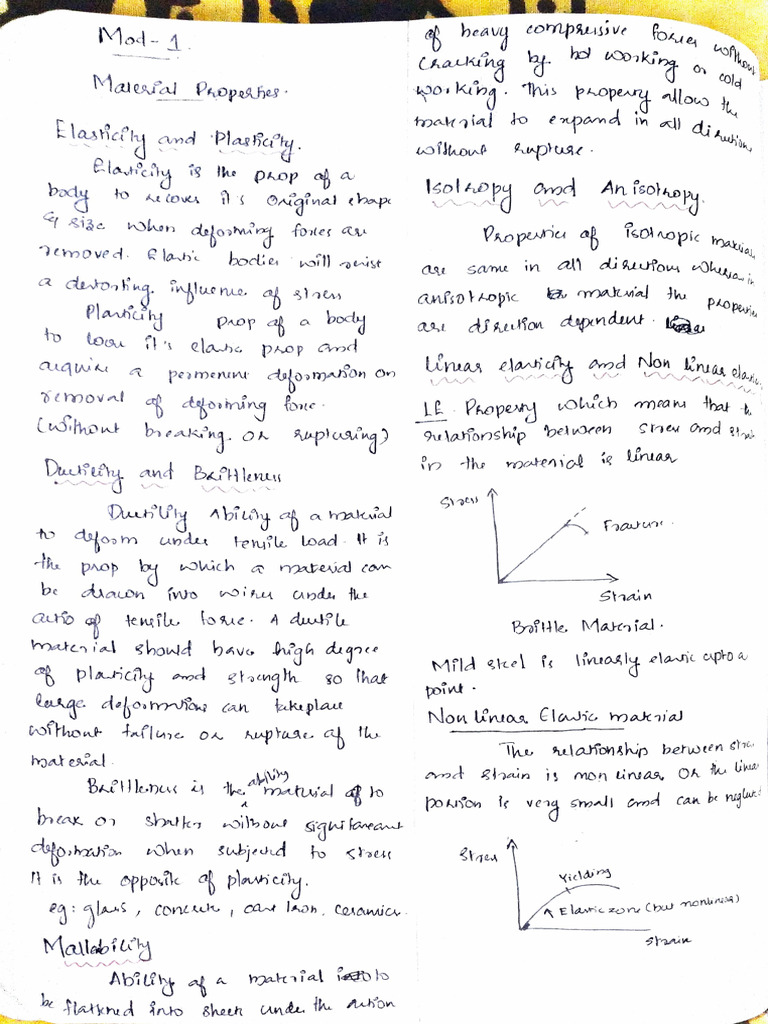 Mod-1.
Material Properties.
Elasticity and Plasticity.
Elasticity is the prop of a
body to recover it's original shape
& size when deforming forces are
removed. Elastic bodies will resist
a distorting influence of stress
Plasticity prop of a body
to loose it's elastic prop and
acquire a permenent deformation on
removal of deforming force.
(without breaking or rupturing)
Ducticity and Brittleness
Ductility Ability of a material
to deform under tensile load. It is
the prop by which a material can
be drawn into wires under the
actio of tensile force. A ductile
material should have high degree
of plasticity and strength so that
large deformations can takeplace
without failure or rupture of the
material.
Brittleness is the ability material of to
break or shatter without significant
deformation when subjected to stress
It is the opposite of plasticity.
eg: glass, concrete, cast Iron, ceramics.
Mallability
Ability of a material to
be flattened into sheet under the action
of heavy compressive forces without
cracking by hot working or cold
working. This property allow the
material to expand in all directions
without rupture.
Isotropy and Anisotropy.
Properties of isotropic material
are same in all directions whereas in
anisotropic material the properties
are direction dependent.
Linear elasticity and Non linear elastic
LE. Property which means that the
relationship between stress and strain
in the material is linear
Stress
Fracture.
Strain
Brittle Material.
Mild steel is linearly elastic upto a
point.
Non linear Elastic material
The relationship between stress
and strain is non linear or the linear
portion is very small and can be neglected
Stress
Yielding
Elastic zone (but nonlinear)
Strain